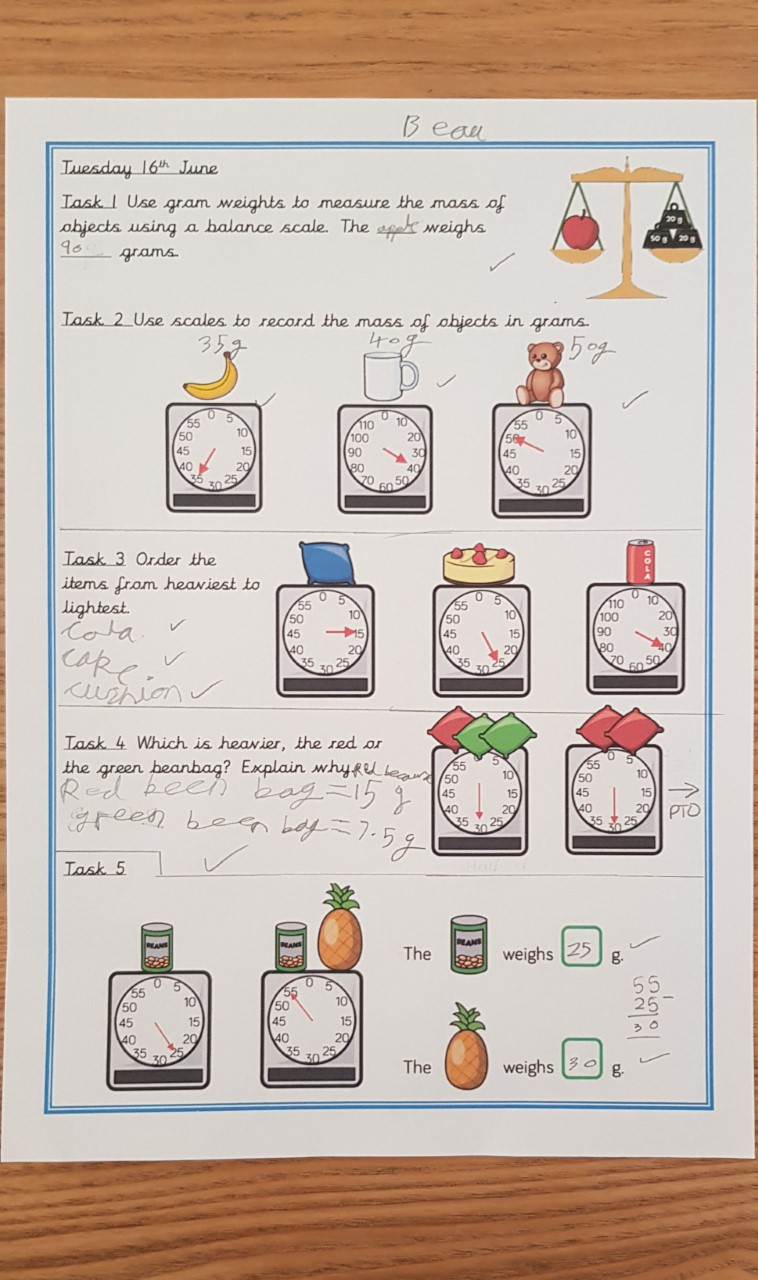 Beau
Tuesday 16th June
Task 1 Use gram weights to measure the mass of
objects using a balance scale. The apple weighs
90 grams.
20 g
50 g 20 g
Task 2 Use scales to record the mass of objects in grams.
35g 40g 50g
0 5 10 15 20 25 30 35 40 45 50 55
0 10 20 30 40 50 60 70 80 90 100 110
0 5 10 15 20 25 30 35 40 45 50 55
Task 3 Order the
items from heaviest to
lightest.
Cola.
cake.
cushion
COLA
0 5 10 15 20 25 30 35 40 45 50 55
0 5 10 15 20 25 30 35 40 45 50 55
0 10 20 30 40 50 60 70 80 90 100 110
Task 4 Which is heavier, the red or
the green beanbag? Explain why. Red because
Red been bag = 15 g
green been bag = 7.5g
0 5 10 15 20 25 30 35 40 45 50 55
0 5 10 15 20 25 30 35 40 45 50 55
→
PTO
Task 5
BEANS
BEANS
0 5 10 15 20 25 30 35 40 45 50 55
0 5 10 15 20 25 30 35 40 45 50 55
The BEANS weighs 25 g.
55
25 -
30
The weighs 30 g.